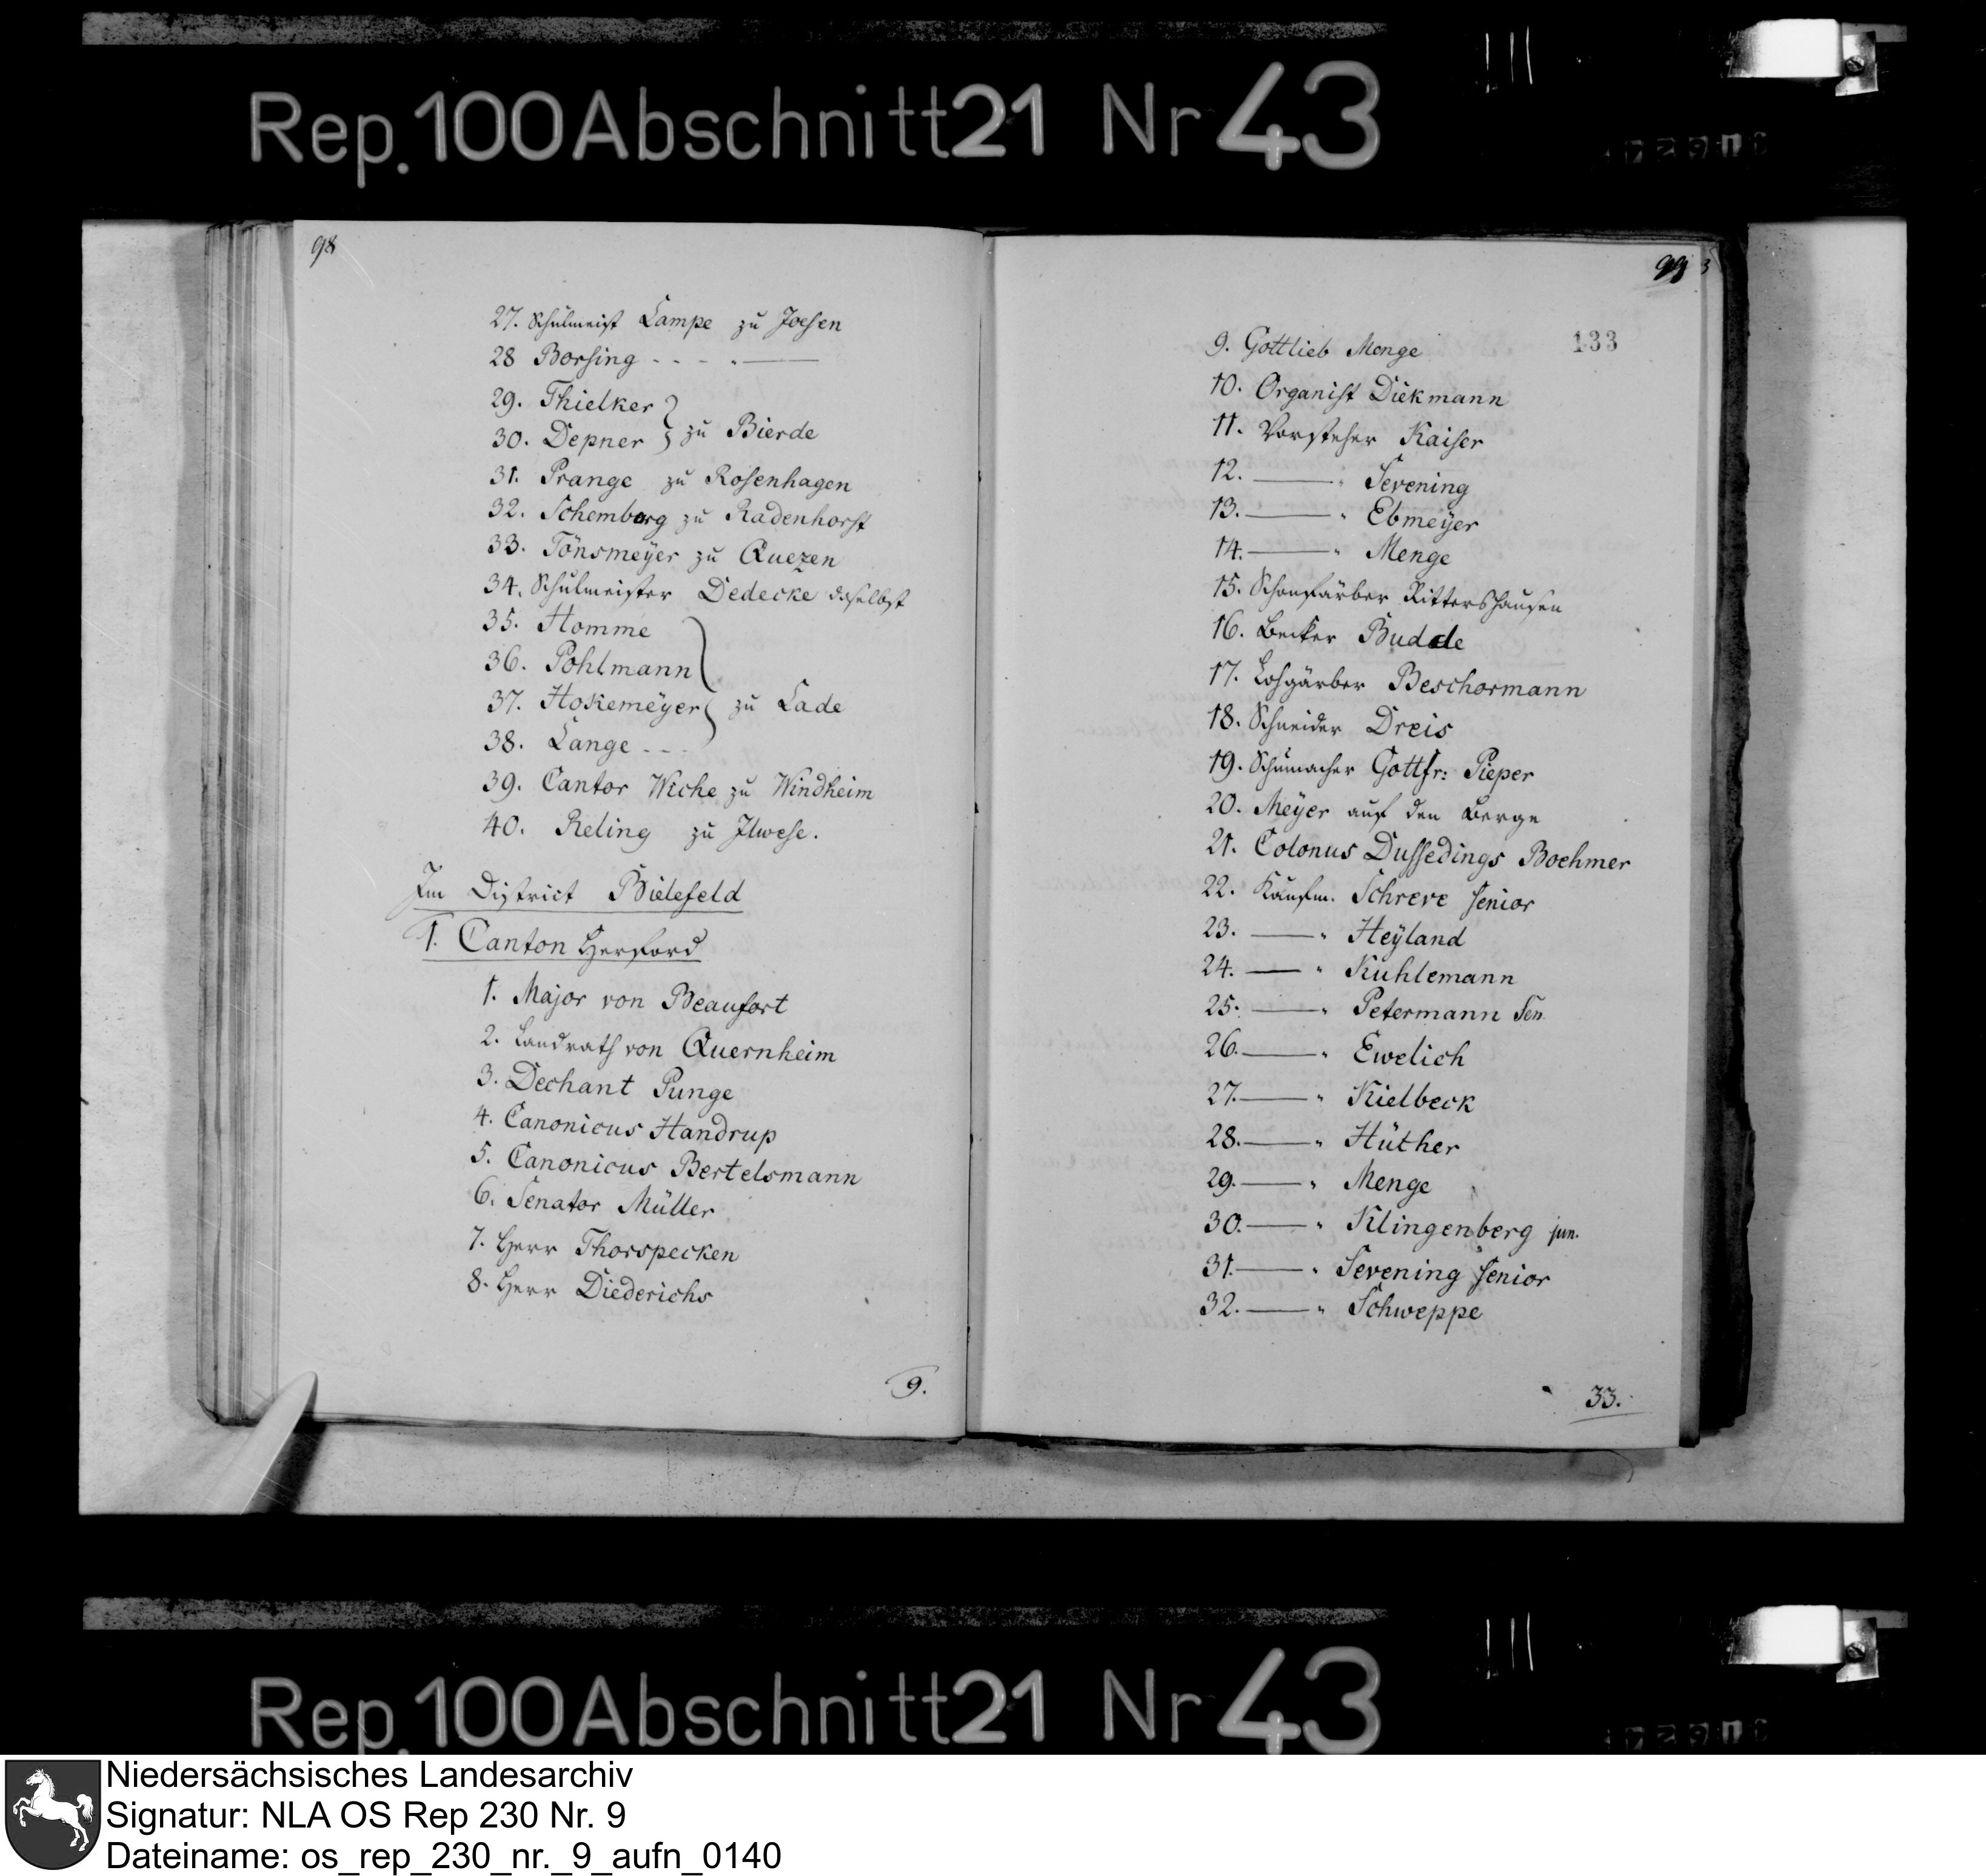 Rep. 100 Abschnitt 21 Nr 43
98
27. Schulmeist Lampe zu Joesen
28 Borsing - - - " ———
29. Thielker
30. Depner } zu Bierde
31. Prange zu Rosenhagen
32. Schemberg zu Radenhorst
33. Tönsmeÿer zu Quezen
34. Schulmeister Dedecke daselbst
35. Homme
36. Pohlmann
37. Hokemeÿer } zu Lade
38. Lange - - -
39. Cantor Wiche zu Windheim
40. Reling zu Ilwese.
Im District Bielefeld
1. Canton Herford
1. Major von Beaufort
2. Landrath von Quernheim
3. Dechant Punge
4. Canonicus Handrup
5. Canonicus Bertelsmann
6. Senator Müller
7. Herr Thorspecken
8. Herr Diederichs
9.
99
133
9. Gottlieb Menge
10. Organist Diekmann
11. Vorsteher Kaiser
12. ——— " Sevening
13. ——— " Ebmeÿer
14. ——— " Menge
15. Schönfärber Rittershausen
16. Becker Budde
17. Lohgärber Beschormann
18. Schneider Dreis
19. Schumacher Gottfr: Pieper
20. Meÿer auf den Berge
21. Colonus Dussedings Boehmer
22. Kaufm. Schreve senior
23. ——— " Heÿland
24. ——— " Kuhlemann
25. ——— " Petermann Sen.
26. ——— " Ewelich
27. ——— " Kielbeck
28. ——— " Hüther
29. ——— " Menge
30. ——— " Klingenberg jun.
31. ——— " Sevening senior
32. ——— " Schweppe
33.
Rep. 100 Abschnitt 21 Nr 43
Niedersächsisches Landesarchiv
Signatur: NLA OS Rep 230 Nr. 9
Dateiname: os_rep_230_nr._9_aufn_0140